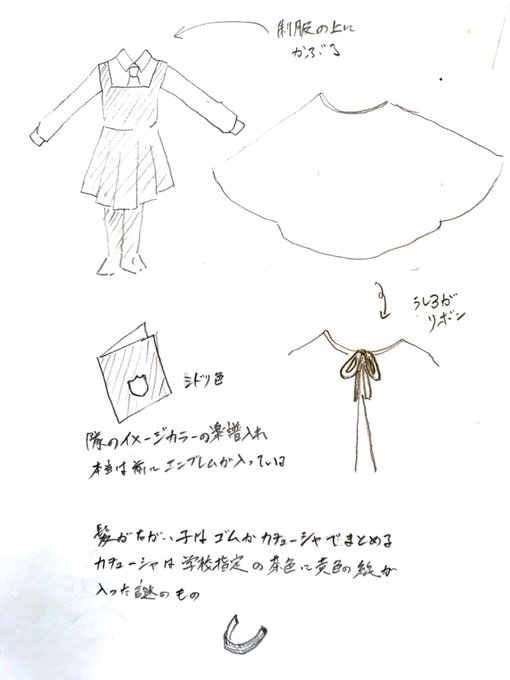 制服の上に
かぶる
うしろが
リボン
ミドリ色
隊のイメージカラーの楽譜入れ
本当は前にエンブレムが入っている
髪がながい子はゴムかカチューシャでまとめる
カチューシャは学校指定の茶色に黄色の線が
入った謎のもの